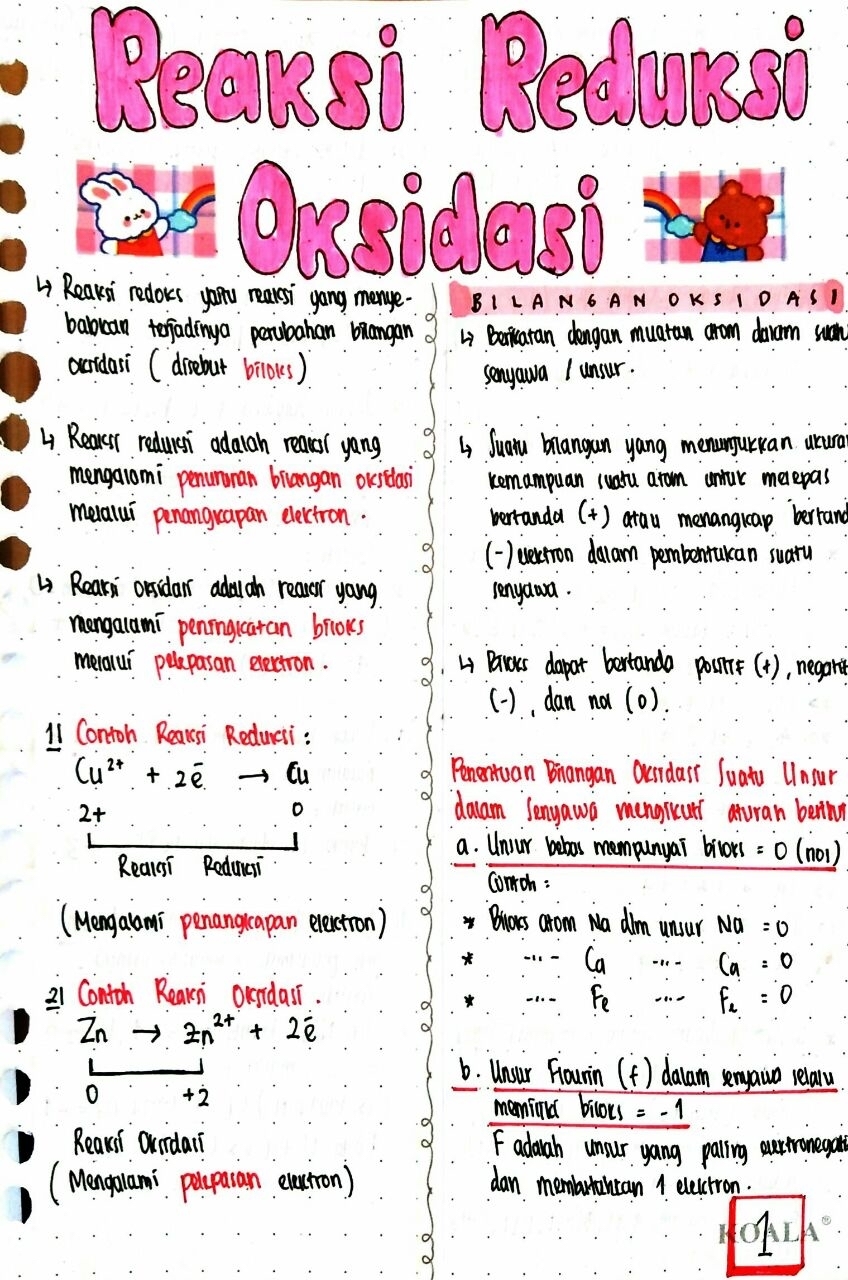 Reaksi Reduksi
Oksidasi
↳ Reaksi redoks yaitu reaksi yang menye-
babkan terjadinya perubahan bilangan
oksidasi (disebut biloks)
↳ Reaksi reduksi adalah reaksi yang
mengalami penurunan bilangan oksidasi
melalui penangkapan elektron.
↳ Reaksi oksidasi adalah reaksi yang
mengalami peningkatan biloks
melalui pelepasan elektron.
1) Contoh Reaksi Reduksi :
Cu²⁺ + 2ē → Cu
2+ 0
Reaksi Reduksi
(Mengalami penangkapan elektron)
2) Contoh Reaksi Oksidasi.
Zn → Zn²⁺ + 2ē
0 +2
Reaksi Oksidasi
(Mengalami pelepasan elektron)
BILANGAN OKSIDASI
↳ Berikatan dengan muatan atom dalam suatu
senyawa / unsur.
↳ Suatu bilangan yang menunjukkan ukuran
kemampuan suatu atom untuk melepas
bertanda (+) atau menangkap bertand
(-) elektron dalam pembentukan suatu
senyawa.
↳ Biloks dapat bertanda positif (+), negatif
(-), dan nol (0).
Penentuan Bilangan Oksidasi Suatu Unsur
dalam Senyawa mengikuti aturan berikut
a. Unsur bebas mempunyai biloks = 0 (nol)
Contoh :
* Biloks atom Na dlm unsur Na = 0
* -"- Ca -"- Ca = 0
* -"- Fe -"- Fe = 0
b. Unsur Flourin (f) dalam senyawa selalu
memiliki biloks = -1
F adalah unsur yang paling elektronegati
dan membutuhkan 1 elektron.
KOALA®
1